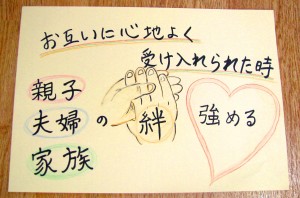 お互いに心地よく
受け入れられた時
親子
夫婦の絆強める
家族